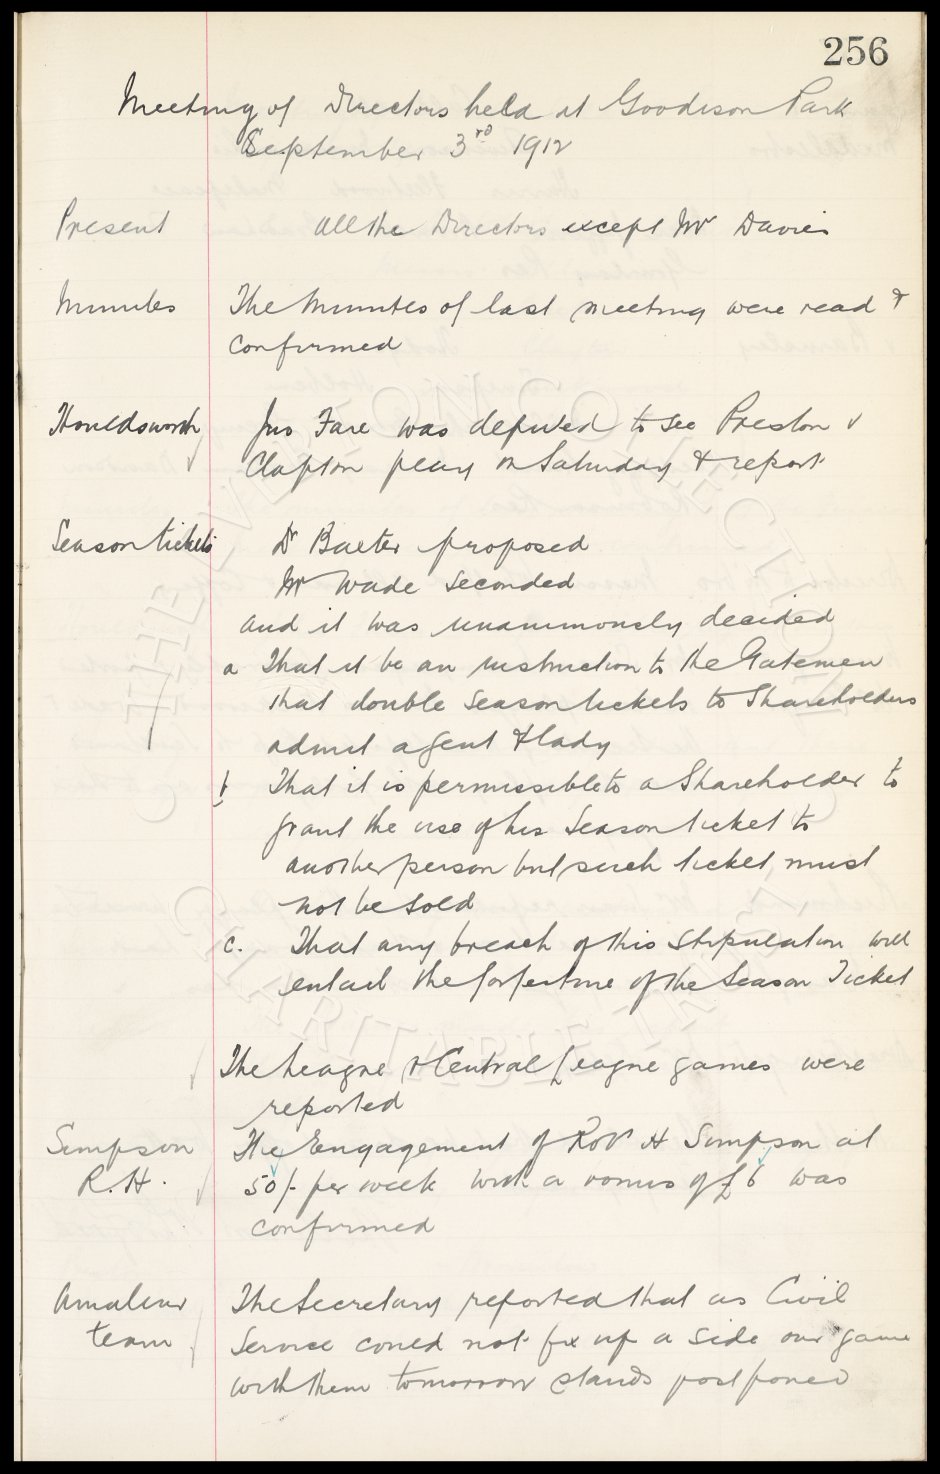 256
Meeting of Directors held at Goodison Park
September 3rd 1912
Present All the Directors except Mr Davies
Minutes The Minutes of last meeting were read &
confirmed
Houldsworth Jno Fare was deputed to see Preston v
Clapton play on Saturday & report
Season tickets Dr Baxter proposed
Mr Wade seconded
and it was unanimously decided
a That it be an instruction to the Gatemen
that double season tickets to Shareholders
admit a gent & lady
b That it is permissible to a Shareholder to
grant the use of his Season ticket to
another person but such ticket must
not be sold
c. That any breach of this stipulation will
entail the forfeiture of the Season Ticket
The League & Central League games were
reported
Simpson The Engagement of Robt H Simpson at
R.H. 50/- per week with a bonus of £6 was
confirmed
Amateur The Secretary reported that as Civil
team Service could not fix up a side our game
with them tomorrow stands postponed
THE EVERTON COLLECTION
CHARITABLE TRUST